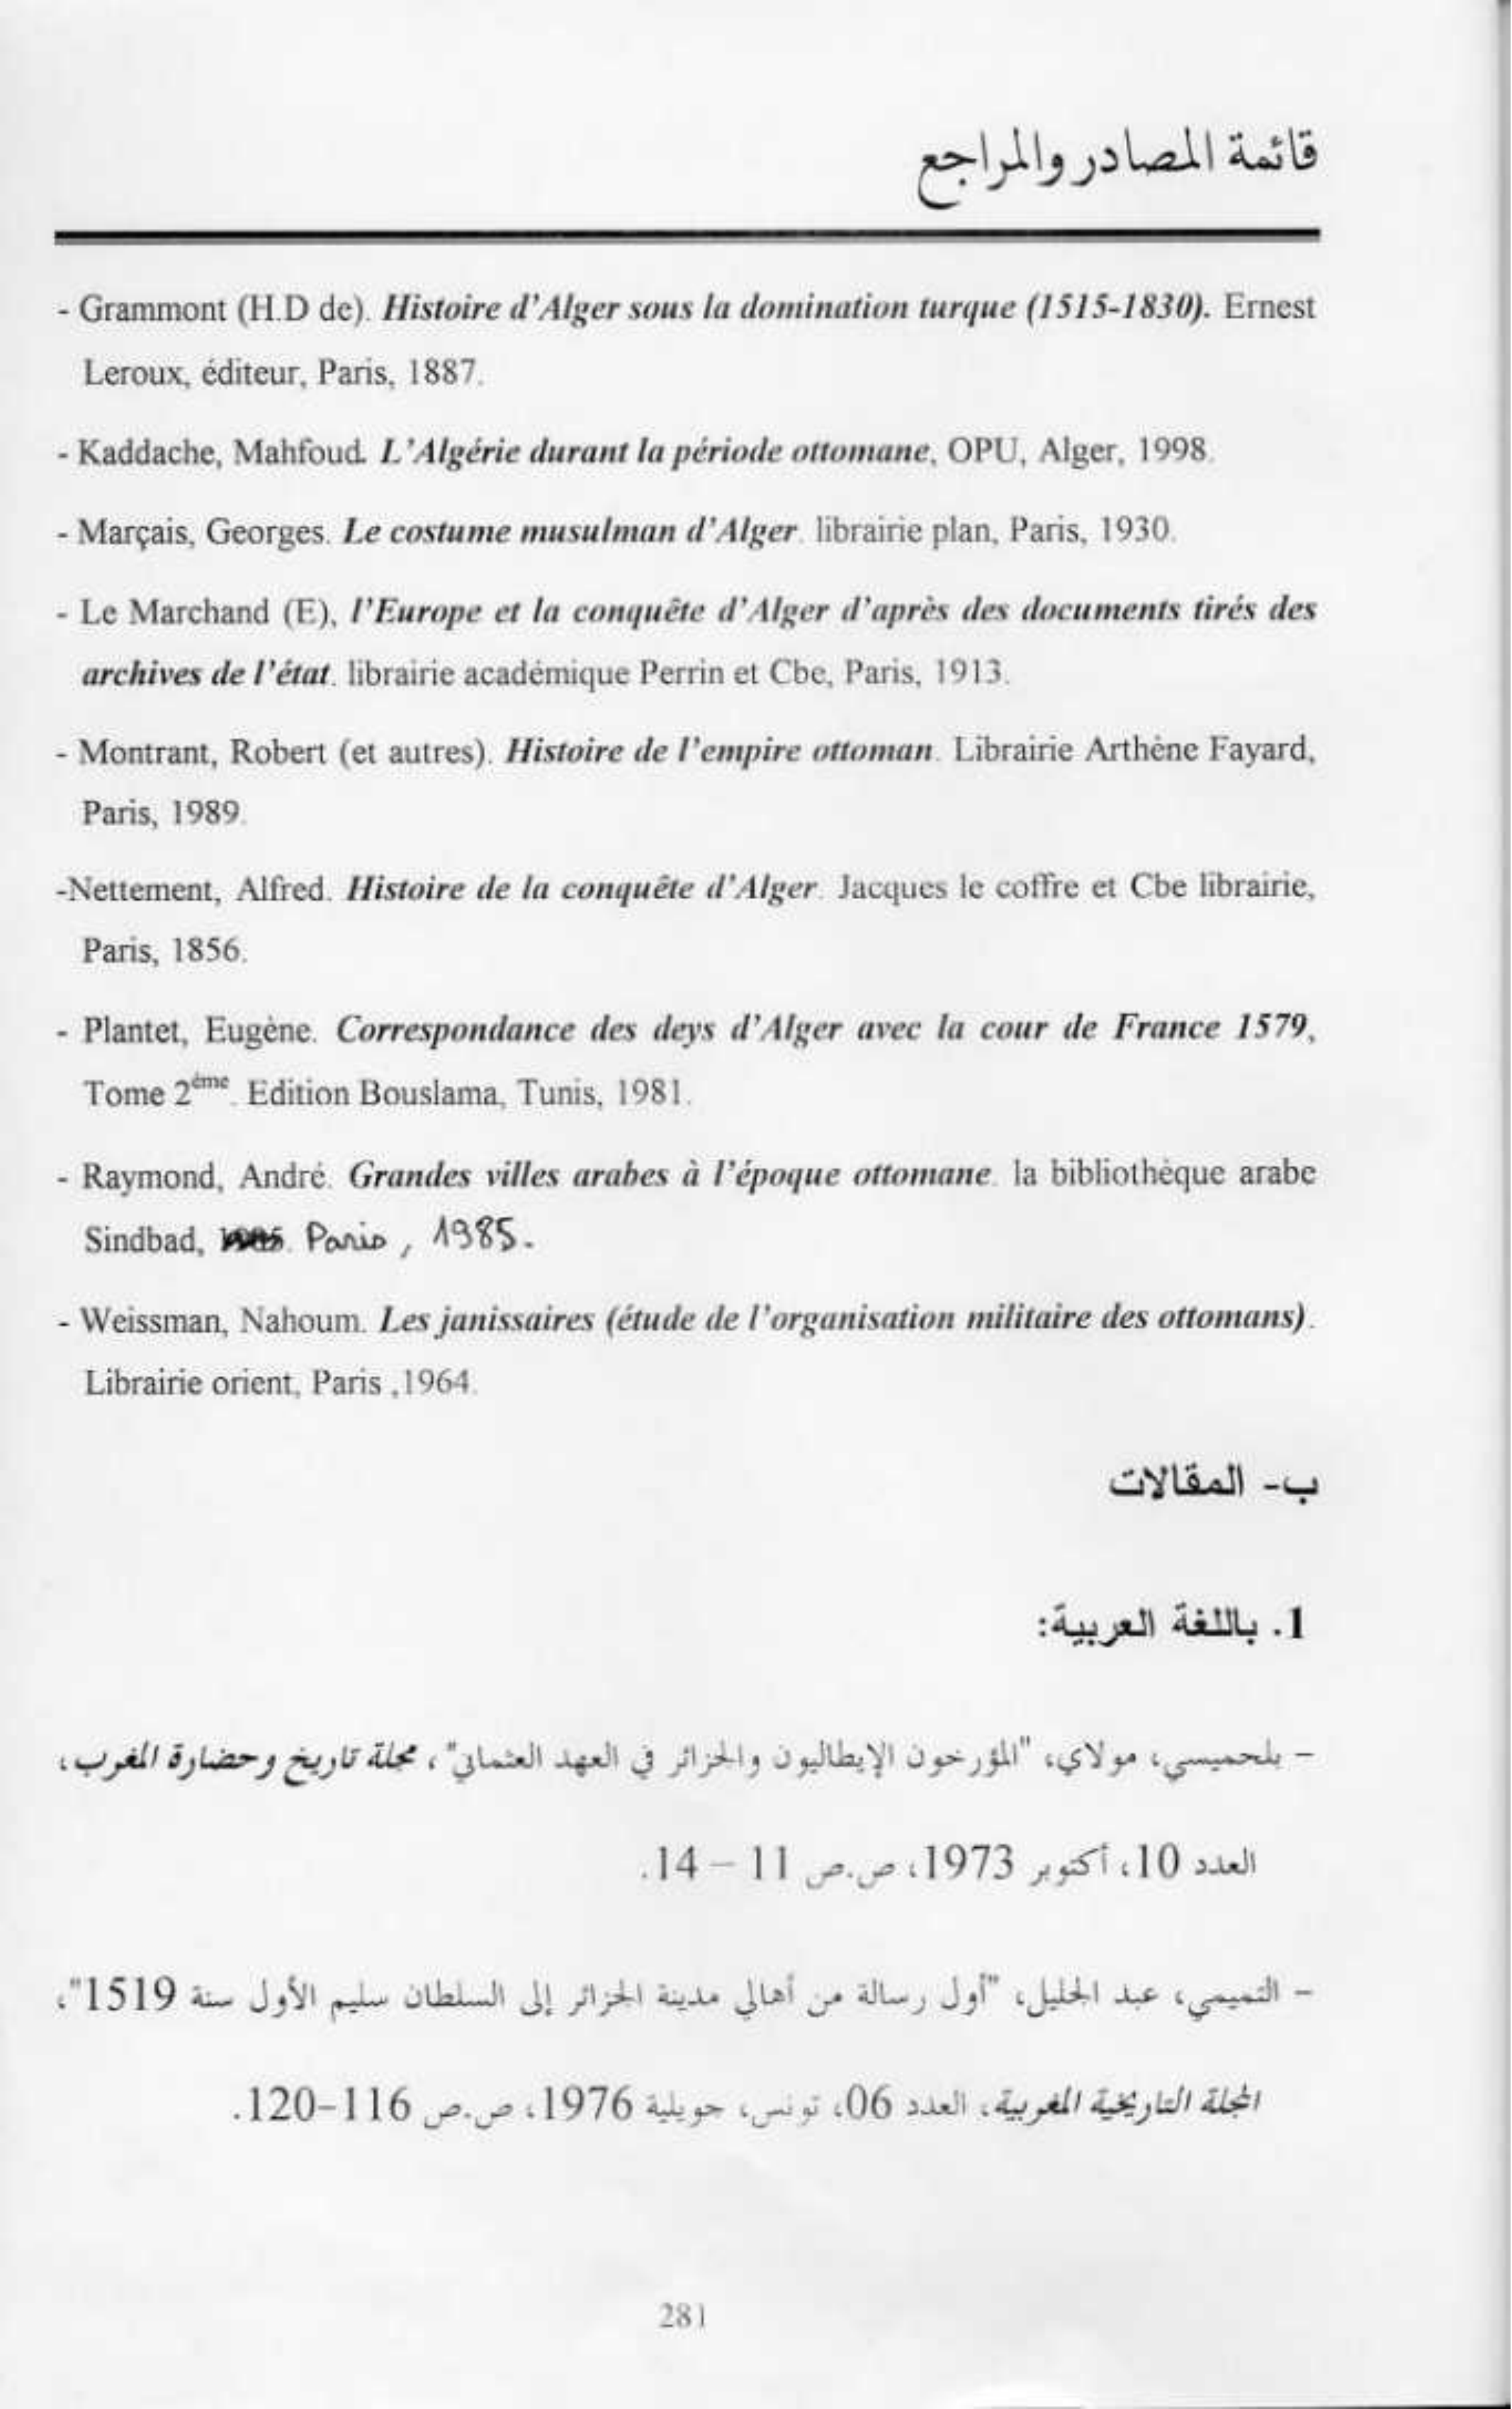 قائمة المصادر والمراجع
- Grammont (H.D de). Histoire d'Alger sous la domination turque (1515-1830). Ernest
Leroux, éditeur, Paris, 1887.
- Kaddache, Mahfoud. L'Algérie durant la période ottomane, OPU, Alger, 1998.
- Marçais, Georges. Le costume musulman d'Alger. librairie plan, Paris, 1930.
- Le Marchand (E), l'Europe et la conquête d'Alger d'après des documents tirés des
archives de l'état. librairie académique Perrin et Cbe, Paris, 1913.
- Montrant, Robert (et autres). Histoire de l'empire ottoman. Librairie Arthène Fayard,
Paris, 1989.
-Nettement, Alfred. Histoire de la conquête d'Alger. Jacques le coffre et Cbe librairie,
Paris, 1856.
- Plantet, Eugène. Correspondance des deys d'Alger avec la cour de France 1579,
Tome 2ème. Edition Bouslama, Tunis, 1981.
- Raymond, André. Grandes villes arabes à l'époque ottomane. la bibliothèque arabe
Sindbad, Paris, 1985.
- Weissman, Nahoum. Les janissaires (étude de l'organisation militaire des ottomans).
Librairie orient, Paris ,1964.
ب- المقالات
1. باللغة العربية:
- بلحميسي، مولاي، "المؤرخون الإيطاليون والجزائر في العهد العثماني"، مجلة تاريخ وحضارة المغرب،
العدد 10، أكتوبر 1973، ص.ص 11 – 14.
- التميمي، عبد الجليل، "أول رسالة من أهالي مدينة الجزائر إلى السلطان سليم الأول سنة 1519"،
المجلة التاريخية المغربية، العدد 06، تونس، جويلية 1976، ص.ص 116-120.
281